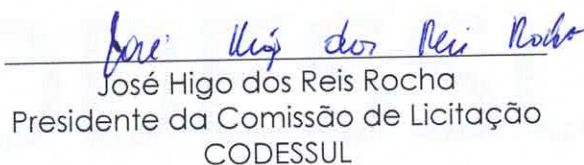 José Higo dos Reis Rocha
José Higo dos Reis Rocha
Presidente da Comissão de Licitação
CODESSUL